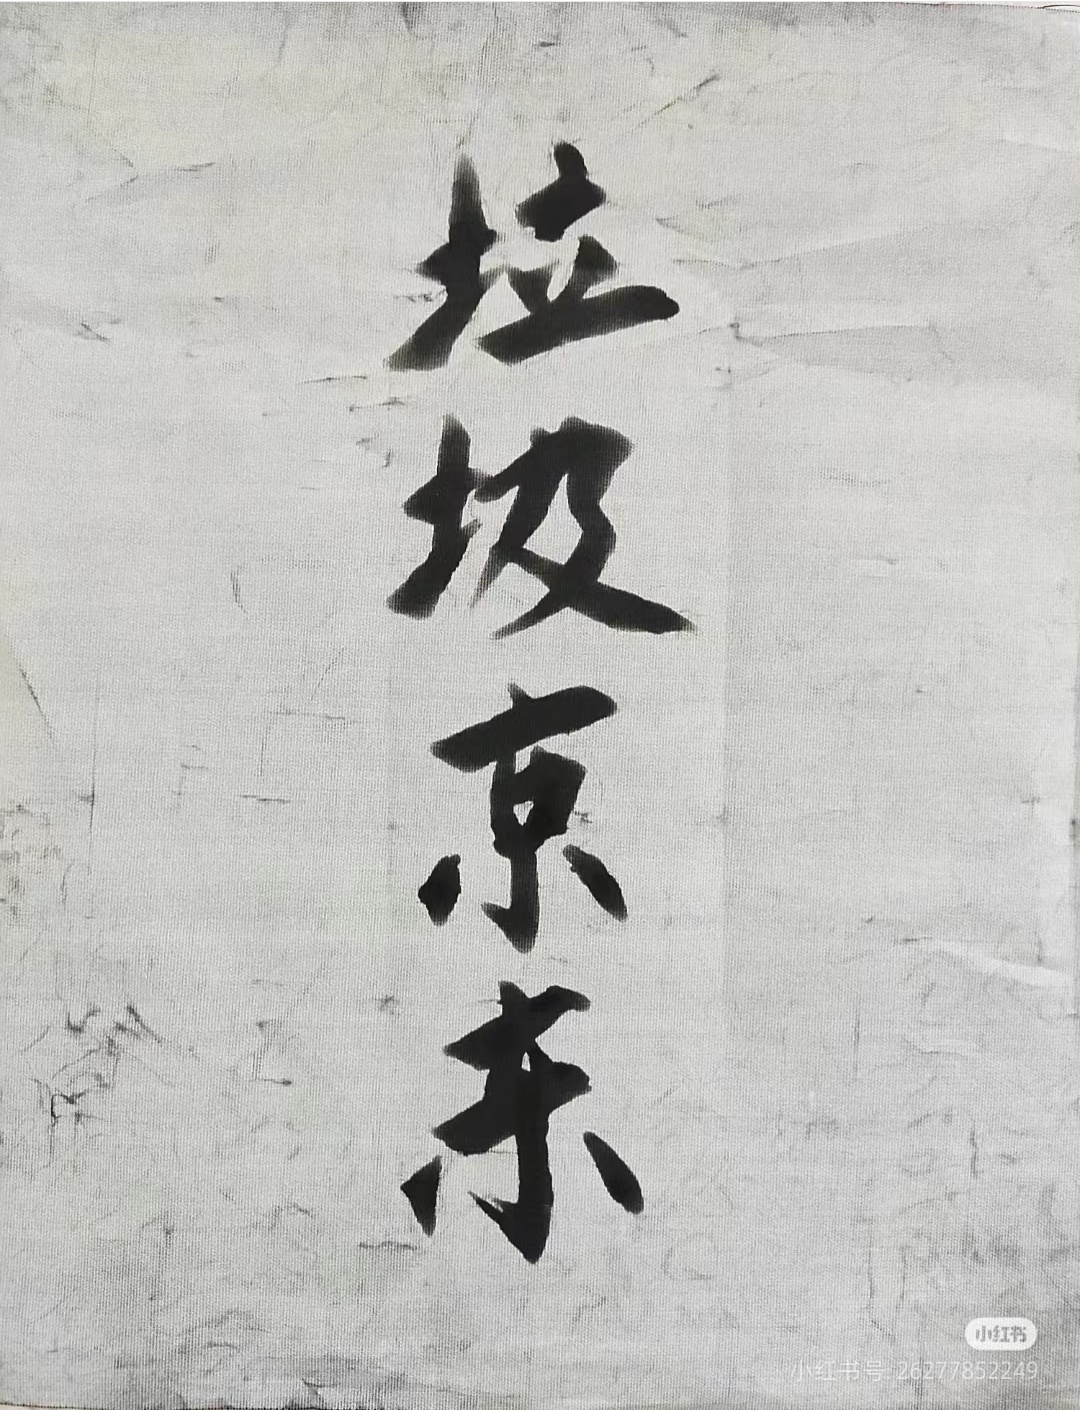 垃圾京东
小红书
小红书号: 26277852249